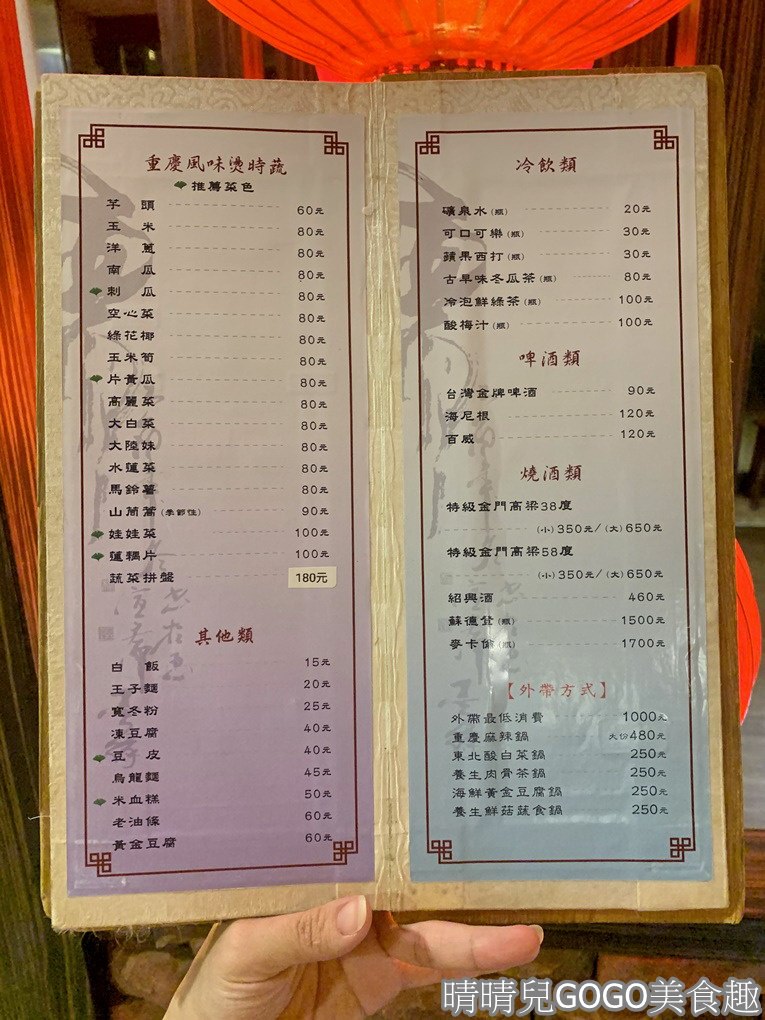 重慶風味燙時蔬
推薦菜色
芋頭 60元
玉米 80元
洋蔥 80元
南瓜 80元
刺瓜 80元
空心菜 80元
綠花椰 80元
玉米筍 80元
片黃瓜 80元
高麗菜 80元
大白菜 80元
大陸妹 80元
水蓮菜 80元
馬鈴薯 80元
山茼蒿(季節性) 90元
娃娃菜 100元
蓮耦片 100元
蔬菜拼盤 180元
其他類
白飯 15元
王子麵 20元
寬冬粉 25元
凍豆腐 40元
豆皮 40元
烏龍麵 45元
米血糕 50元
老油條 60元
黃金豆腐 60元
冷飲類
礦泉水(瓶) 20元
可口可樂(瓶) 30元
蘋果西打(瓶) 30元
古早味冬瓜茶(瓶) 80元
冷泡鮮綠茶(瓶) 100元
酸梅汁(瓶) 100元
啤酒類
台灣金牌啤酒 90元
海尼根 120元
百威 120元
燒酒類
特級金門高梁38度
(小)350元/(大)650元
特級金門高梁58度
(小)350元/(大)650元
紹興酒 460元
蘇德登(瓶) 1500元
麥卡倫(瓶) 1700元
【外帶方式】
外帶最低消費 1000元
重慶麻辣鍋 大份480元
東北酸白菜鍋 250元
養生肉骨茶鍋 250元
海鮮黃金豆腐鍋 250元
養生鮮菇蔬食鍋 250元
晴晴兒GOGO美食趣